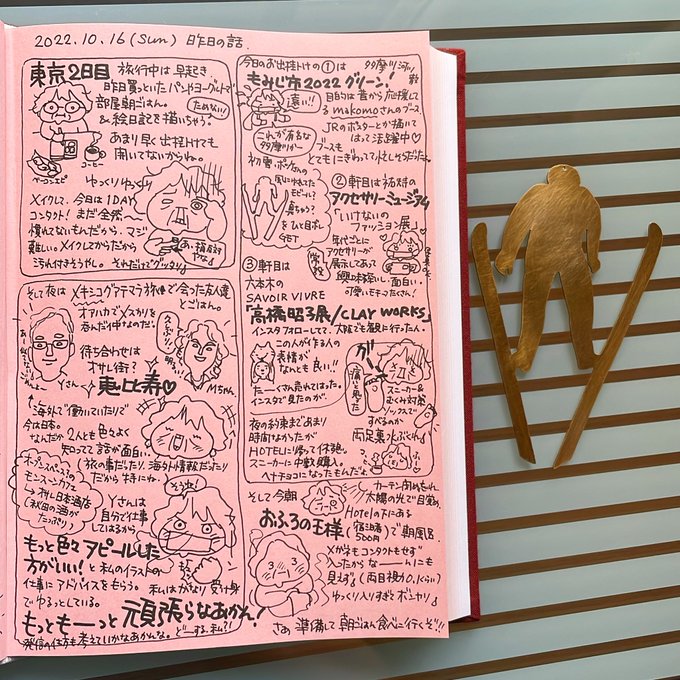 2022.10.16(Sun) 昨日の話.
東京2日目 旅行中は早起き
昨日買っといたパンやヨーグルトで
部屋朝ごはん。
ためない!
&絵日記で描いちゃう。
あまり早く出掛けても
開いてないからね。
ベーコンエピ
コーヒー
ゆっくりゆっくり
メイクして、今日は1DAY
コンタクト!まだ全然〜
慣れないもんだから、マジ
難しい。メイクしてからだから
汚れ付きそうやし。それだけでグッタリ
そして夜はメキシコグアテマラ旅で会った友人達
とごはん。
オアハカでメスカルを
呑んだ仲なのだ。
待ち合わせは
オサレ街?
恵比寿♡
Yさん
Mちゃん
海外で働いていたりで
今は日本。
なんだか2人とも色々よく
知ってて話が面白い。
(旅の事だったり、海外情報だったり
だから特にね。
モンスーンカフェ
→利き日本酒店
(秋田の酒が
たっぷり)
そう!
Yさんは
自分で仕事
してはるから
もっと色々アピールした
方がいい!と私のイラストの
仕事にアドバイスをもらう。私はかなり受け身
でゆるっとしている。
もっともーっと頑張らなあかん!
発信の仕方も考えていかなあかんな。どーする、私?!
今日のお出掛けの①は 多摩川河川敷
もみじ市2022 グリーン!
遠い!!
目的は昔から応援して
る makomoさんのブース
JRのポスターとか描いて
はって活躍中♡
これが有名な
多摩川かー
ブースも
とてもにぎわってて忙しそうだった。
②軒目は祐天寺の
アクセサリーミュージアム
「いけない
ファッション展」
年代ごとに
アクセサリーが
展示してあって
興味深いし、面白い。
可愛いモチーフたくさん!
GET
③軒目は
六本木の
SAVOIR VIVRE
「高橋昭子展/CLAY WORKS」
インスタフォローしてて、大阪でも観に行ったん。
この人が作る人の
表情が
なんとも良い!!
たーくさん売れてはった。
インスタで見たのが。
ガーン
痛いと思った
スニーカー&
むくみ対策
ソックスで
すべるのか
両足裏水ぶくれ
夜の約束まであまり
時間なかったが
HOTELに帰って休憩。
スニーカーに中敷購入。
ヘナチョコになったもんだよ
そして今朝
カーテン閉めれん
太陽の光で目覚め
Hotelの下にある
おふろの王様(宿泊者500円)で朝風呂.
メガネもコンタクトもせず
入ったからなーーんにも
見えず。(両目視力0.1くらい)
ゆっくり入りすぎてボンヤリ
さぁ準備して朝ごはん食べに行くぞ!!